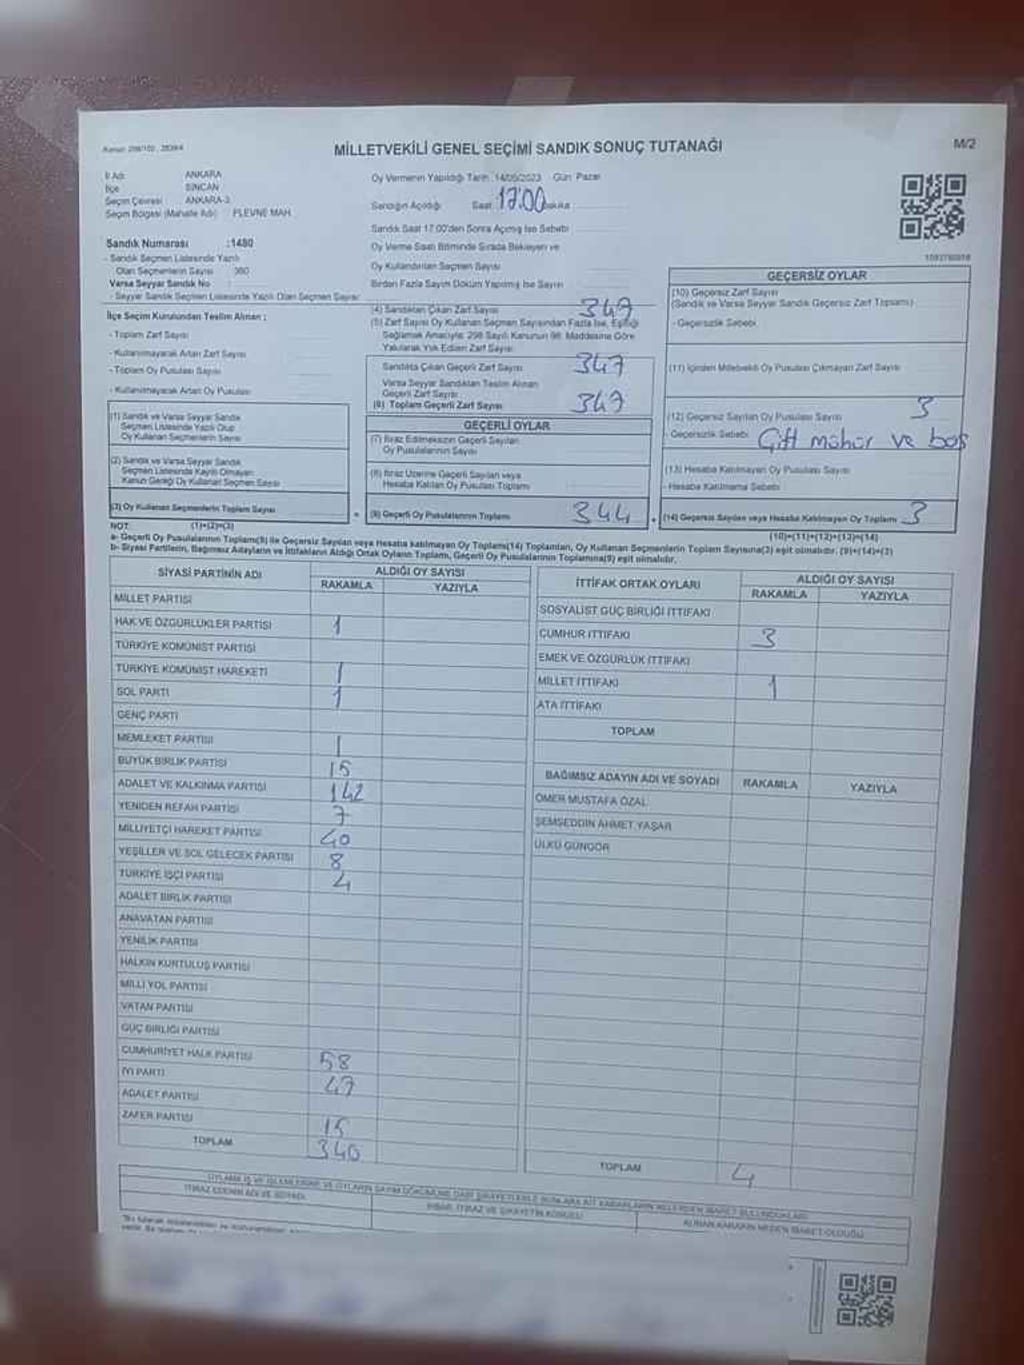 MİLLETVEKİLİ GENEL SEÇİMİ SANDIK SONUÇ TUTANAĞI
M/2
İl Adı ANKARA
İlçe SİNCAN
Seçim Çevresi ANKARA-3
Seçim Bölgesi (Mahalle Adı) : PLEVNE MAH.
Sandık Numarası :1480
- Sandık Seçmen Listesinde Yazılı
Olan Seçmenlerin Sayısı 360
Varsa Seyyar Sandık No :
- Seyyar Sandık Seçmen Listesinde Yazılı Olan Seçmen Sayısı:
Oy Vermenin Yapıldığı Tarih :14/05/2023 Gün: Pazar
Sandığın Açıldığı Saat 17:00 Dakika
Sandık Saat 17.00'den Sonra Açılmış İse Sebebi
Oy Verme Saati Bitiminde Sırada Bekleyen ve
Oy Kullandırılan Seçmen Sayısı
Birden Fazla Sayım Döküm Yapılmış İse Sayısı
İlçe Seçim Kurulundan Teslim Alınan :
- Toplam Zarf Sayısı
- Kullanılmayarak Artan Zarf Sayısı
- Toplam Oy Pusulası Sayısı
- Kullanılmayarak Artan Oy Pusulası
(1) Sandık ve Varsa Seyyar Sandık
Seçmen Listesinde Yazılı Olup
Oy Kullanan Seçmenlerin Sayısı
(2) Sandık ve Varsa Seyyar Sandık
Seçmen Listesinde Kayıtlı Olmayan
Kanun Gereği Oy Kullanan Seçmen Sayısı
(3) Oy Kullanan Seçmenlerin Toplam Sayısı
(4) Sandıktan Çıkan Zarf Sayısı 347
(5) Zarf Sayısı Oy Kullanan Seçmen Sayısından Fazla İse, Eşitliği
Sağlamak Amacıyla; 298 Sayılı Kanunun 98. Maddesine Göre
Yakılarak Yok Edilen Zarf Sayısı
Sandıkta Çıkan Geçerli Zarf Sayısı 347
Varsa Seyyar Sandıktan Teslim Alınan
Geçerli Zarf Sayısı
(6) Toplam Geçerli Zarf Sayısı 347
GEÇERLİ OYLAR
(7) İtiraz Edilmeksizin Geçerli Sayılan
Oy Pusulalarının Sayısı
(8) İtiraz Üzerine Geçerli Sayılan veya
Hesaba Katılan Oy Pusulası Toplamı
(9) Geçerli Oy Pusulalarının Toplamı 344
GEÇERSİZ OYLAR
(10) Geçersiz Zarf Sayısı
(Sandık ve Varsa Seyyar Sandık Geçersiz Zarf Toplamı)
- Geçersizlik Sebebi
(11) İçinden Milletvekili Oy Pusulası Çıkmayan Zarf Sayısı
(12) Geçersiz Sayılan Oy Pusulası Sayısı 3
- Geçersizlik Sebebi Çift mühür ve boş
(13) Hesaba Katılmayan Oy Pusulası Sayısı
- Hesaba Katılmama Sebebi
(14) Geçersiz Sayılan veya Hesaba Katılmayan Oy Toplamı 3
NOT: (1)+(2)=(3)
(10)+(11)+(12)+(13)=(14)
a- Geçerli Oy Pusulalarının Toplamı(9) ile Geçersiz Sayılan veya Hesaba Katılmayan Oy Toplamı(14) Toplamları, Oy Kullanan Seçmenlerin Toplam Sayısına(3) eşit olmalıdır. (9)+(14)=(3)
b- Siyasi Partilerin, Bağımsız Adayların ve İttifakların Aldığı Ortak Oyların Toplamı, Geçerli Oy Pusulalarının Toplamına(9) eşit olmalıdır.
SİYASİ PARTİNİN ADI ALDIĞI OY SAYISI
RAKAMLA YAZIYLA
MİLLET PARTİSİ
HAK VE ÖZGÜRLÜKLER PARTİSİ 1
TÜRKİYE KOMÜNİST PARTİSİ
TÜRKİYE KOMÜNİST HAREKETİ 1
SOL PARTİ 1
GENÇ PARTİ
MEMLEKET PARTİSİ 1
BÜYÜK BİRLİK PARTİSİ 15
ADALET VE KALKINMA PARTİSİ 142
YENİDEN REFAH PARTİSİ 7
MİLLİYETÇİ HAREKET PARTİSİ 40
YEŞİLLER VE SOL GELECEK PARTİSİ 8
TÜRKİYE İŞÇİ PARTİSİ 4
ADALET BİRLİK PARTİSİ
ANAVATAN PARTİSİ
YENİLİK PARTİSİ
HALKIN KURTULUŞ PARTİSİ
MİLLİ YOL PARTİSİ
VATAN PARTİSİ
GÜÇ BİRLİĞİ PARTİSİ
CUMHURİYET HALK PARTİSİ 58
İYİ PARTİ 47
ADALET PARTİSİ
ZAFER PARTİSİ 15
TOPLAM 340
İTTİFAK ORTAK OYLARI ALDIĞI OY SAYISI
RAKAMLA YAZIYLA
SOSYALİST GÜÇ BİRLİĞİ İTTİFAKI
CUMHUR İTTİFAKI 3
EMEK VE ÖZGÜRLÜK İTTİFAKI
MİLLET İTTİFAKI 1
ATA İTTİFAKI
TOPLAM
BAĞIMSIZ ADAYIN ADI VE SOYADI RAKAMLA YAZIYLA
ÖMER MUSTAFA ÖZAL
ŞEMSEDDİN AHMET YAŞAR
ÜLKÜ GÜNGÖR
TOPLAM 4
İTİRAZ EDENİN ADI VE SOYADI
İHBAR, İTİRAZ VE ŞİKAYETİN KONUSU
ALINAN KARARIN NEDEN İBARET OLDUĞU